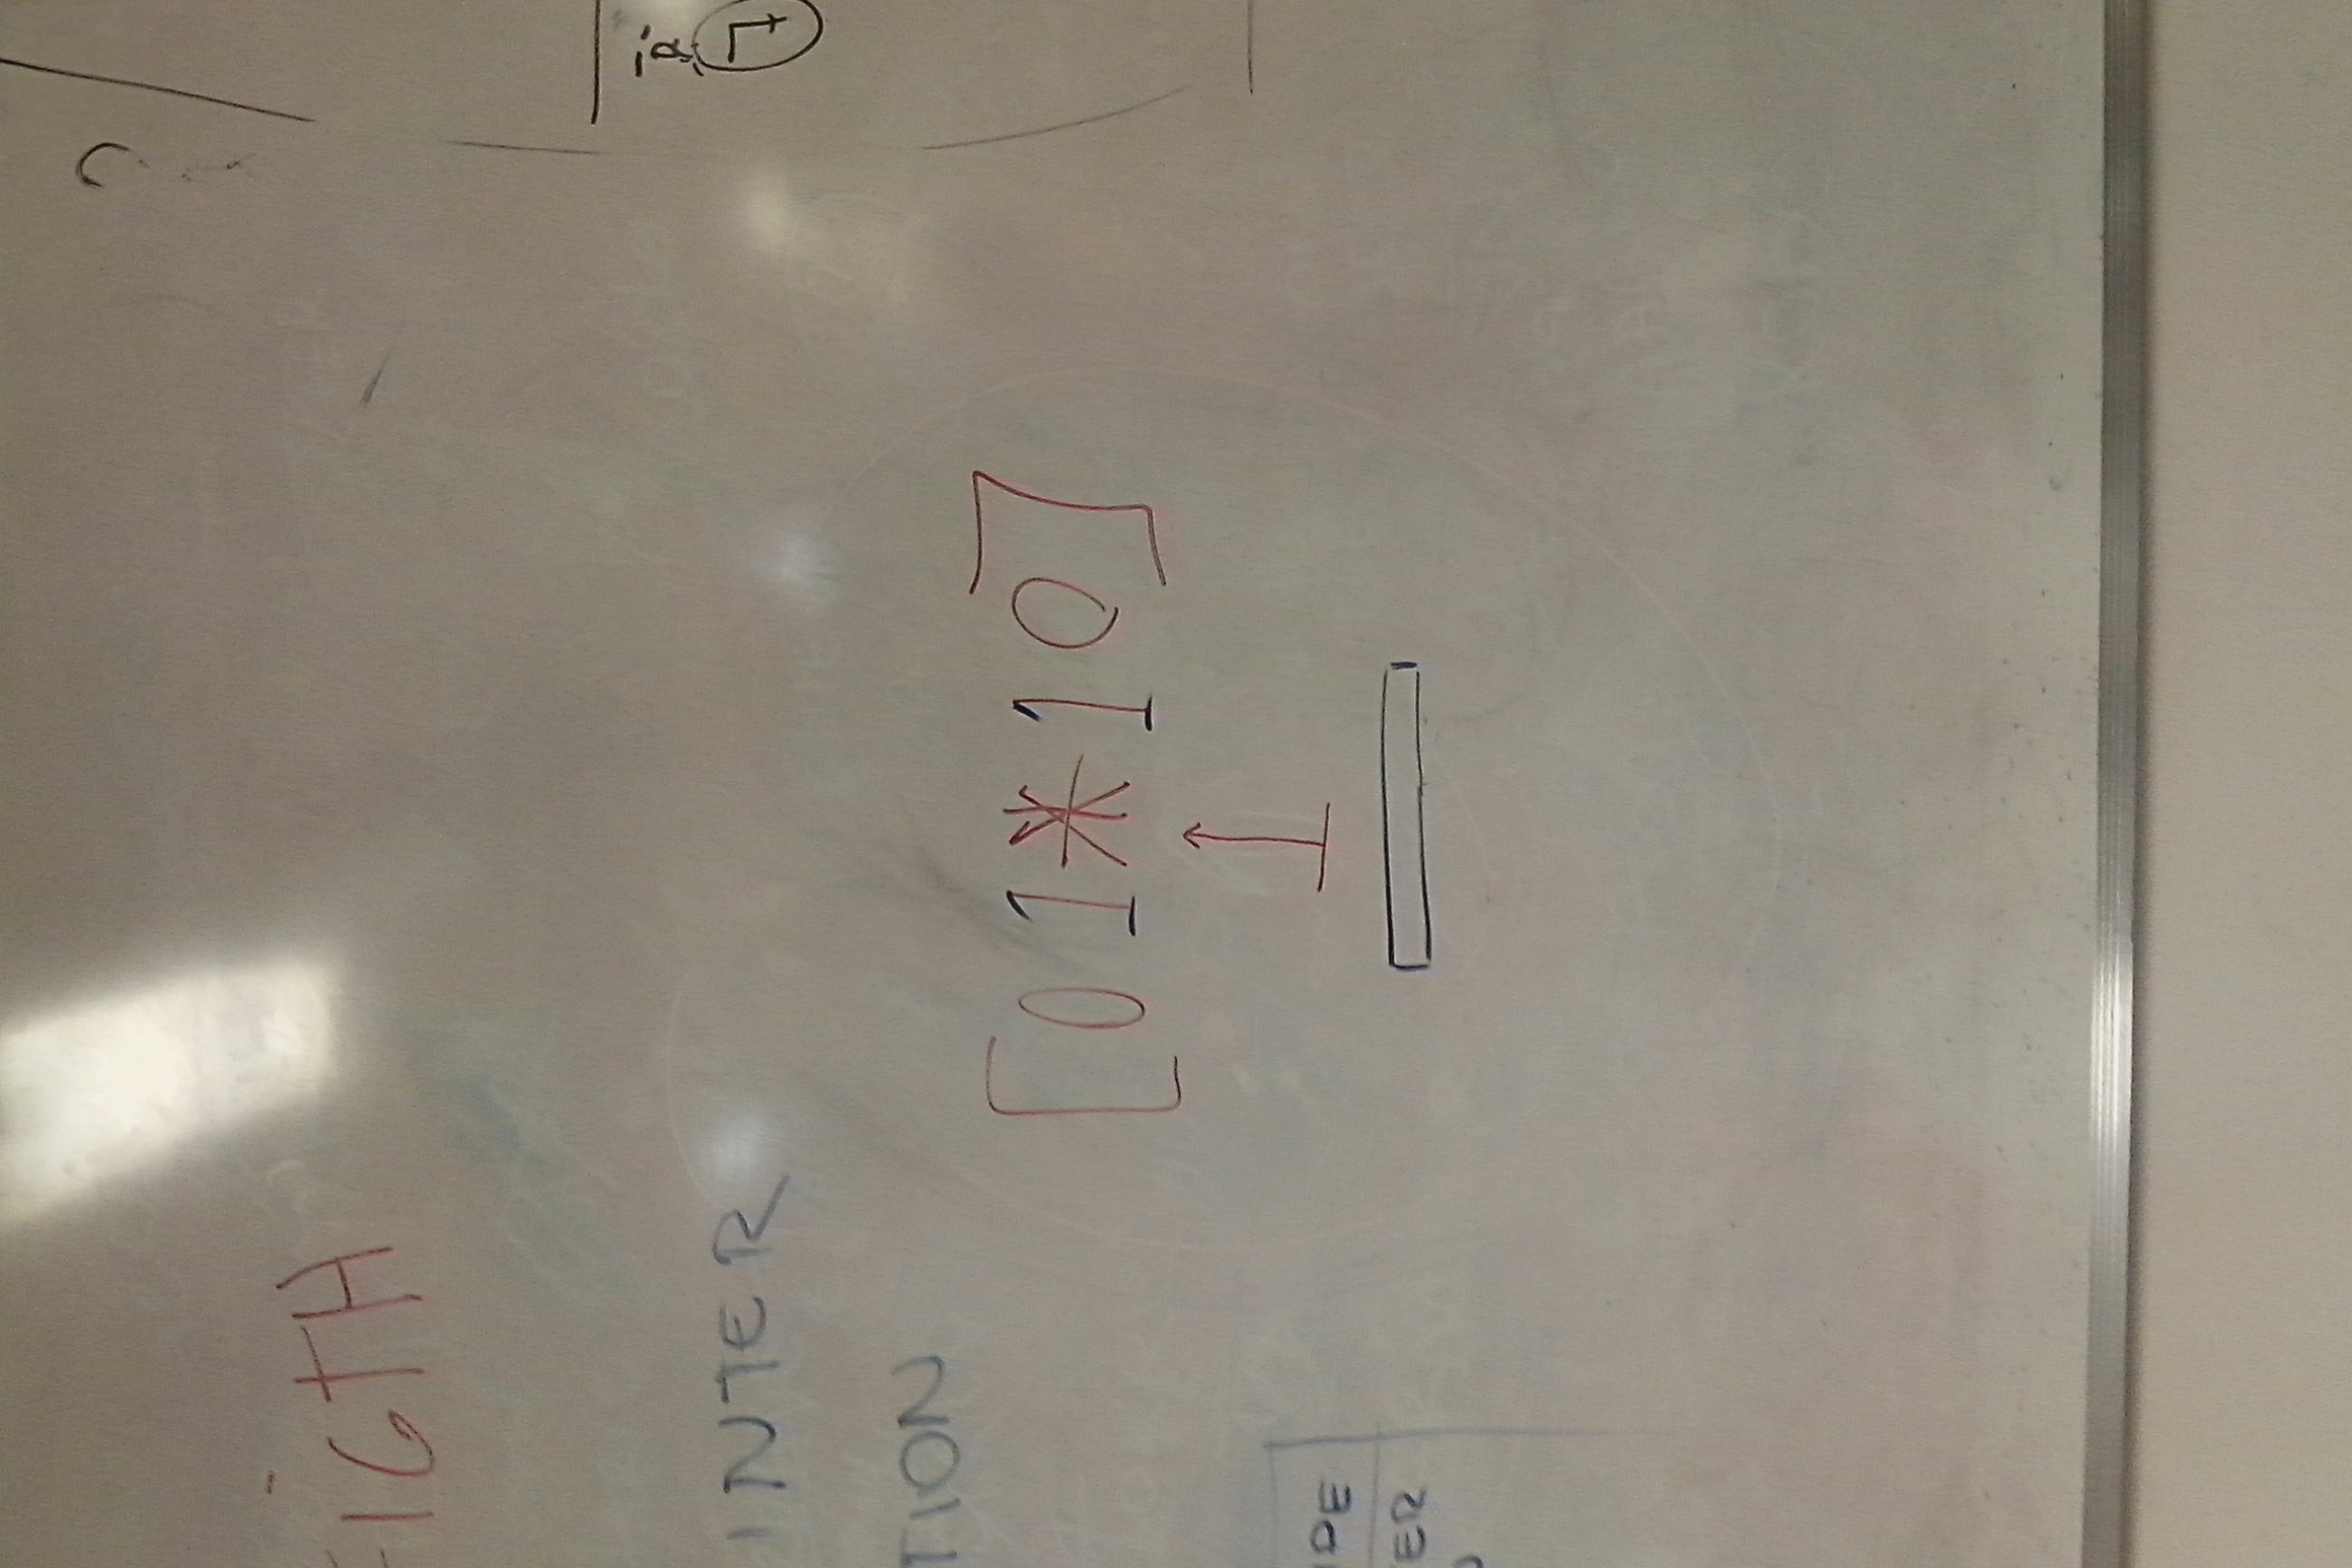 FIGTH
INTER
TION
[01*10]
IDE
ER
7